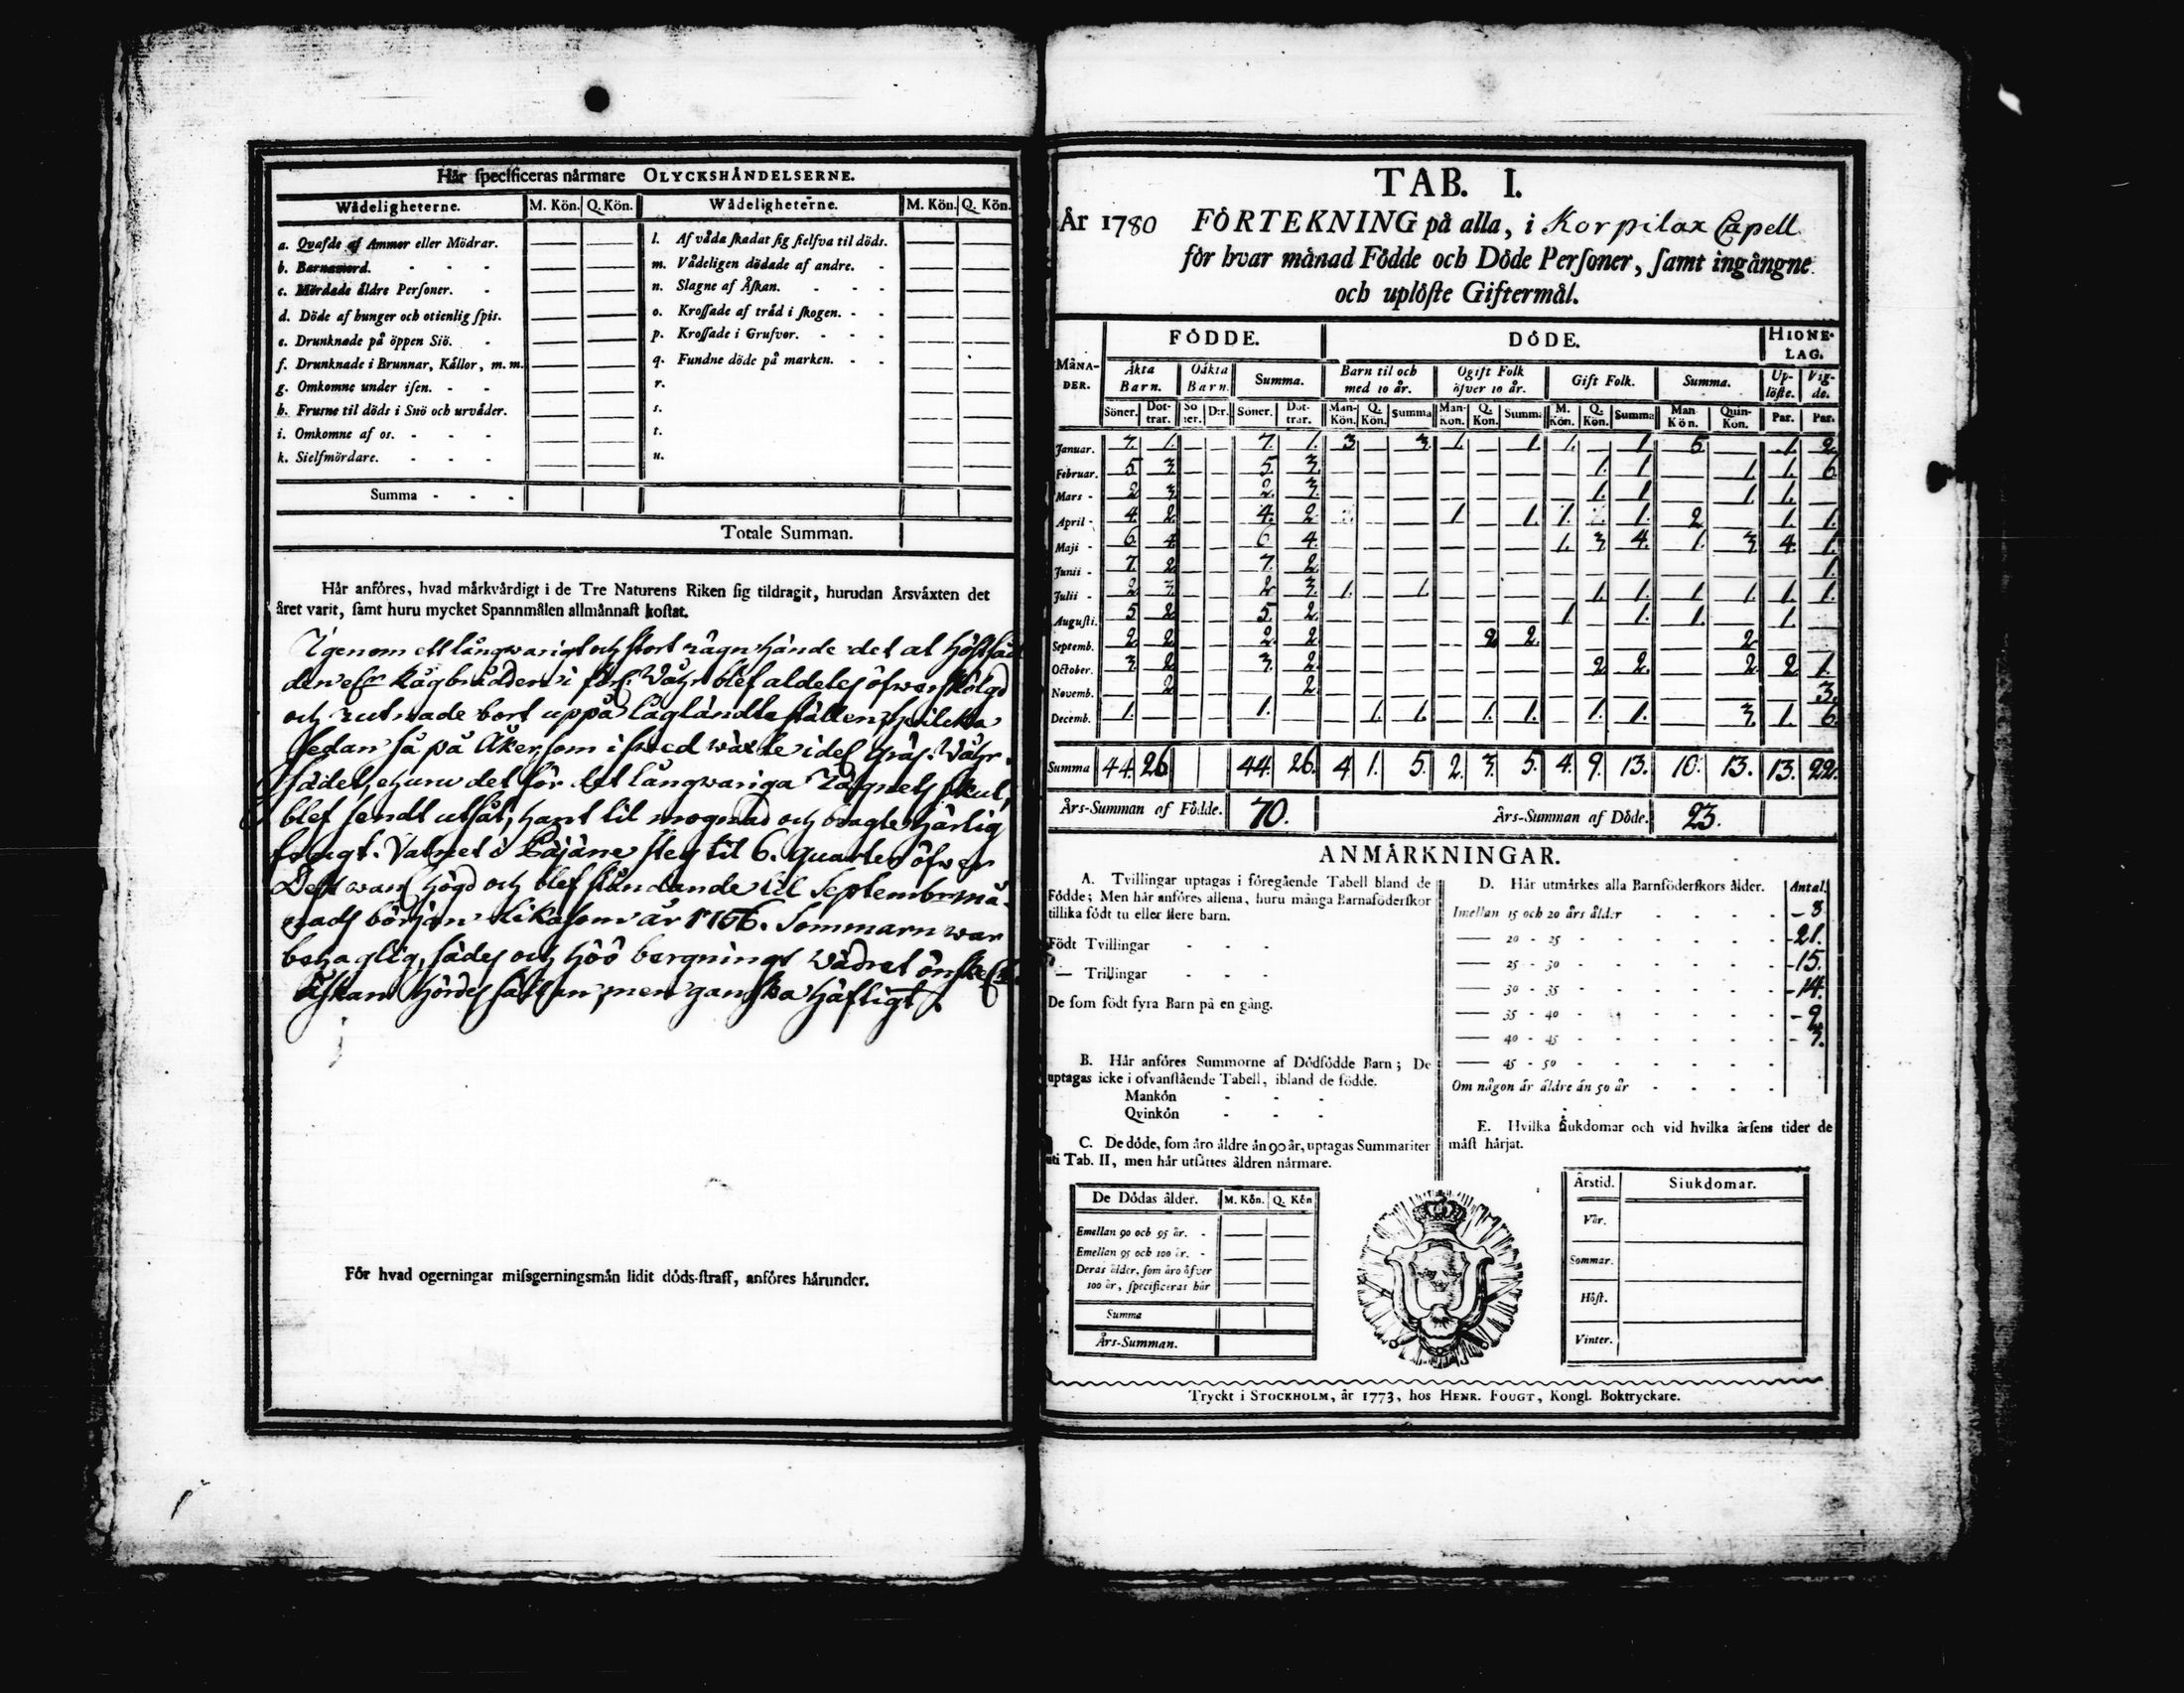 Hår specificeras nårmare OLYCKSHÅNDELSERNE.
Wådeligheterne. M. Kön. Q. Kön. Wådeligheterne. M. Kön. Q. Kön.
a. Qvafde af Ammor eller Mödrar.
b. Barnamord. - - -
c. Mördade åldre Personer. -
d. Döde af hunger och otienlig spis.
e. Drunknade på öppen Siö. -
f. Drunknade i Brunnar, Kållor, m. m.
g. Omkomne under isen. - -
h. Frusne til döds i Snö och urvåder.
i. Omkomne af os. - - -
k. Sielfmördare. - - -
l. Af våda skadat sig sielfva til döds.
m. Vådeligen dödade af andre. -
n. Slagne af Åskan. - - -
o. Krossade af tråd i skogen. - -
p. Krossade i Grufvor. - - -
q. Fundne döde på marken. - -
r.
s.
t.
u.
Summa - - -
Totale Summan.
Hår anföres, hvad mårkvårdigt i de Tre Naturens Riken sig tildragit, hurudan Årsvåxten det
året varit, samt huru mycket Spannmålen allmånnast kostat.
Igenom ett långwarigt och stort rägn hände det at
Rågbrädden i Wåhr blef aldeles öfwerskölgd
och rutnade bort uppå lågländta ställen, hwilka
sedan så på Åker, som i swed wäxte idel gräs. Wåhr
sädet, ehuru det för det långwariga Rägnets skul,
blef sendt utsåt, hant til mognad och bragte härlig
frugt. Vatnet i Päjäne steg til 6. quarter öfwer
Dess wanl. högd och blef ståndande til September må-
nads början likasom år 1766. Sommarn war
behaglig, sädes och höö bergnings wädret
Åskan hördes sällan, men ganska häftigt.
För hvad ogerningar missgerningsmån lidit döds-straff, anföres hårunder.
TAB. I.
År 1780 FÖRTEKNING på alla, i Korpilax Capell
för hvar månad Födde och Döde Personer, samt ingångne
och uplöste Giftermål.
MÅNA-DER. FÖDDE. DÖDE. HIONE-LAG.
Åkta Barn. Oåkta Barn. Summa. Barn til och med 10 år. Ogift Folk öfver 10 år. Gift Folk. Summa. Up-löste. Vig-de.
Söner. Döt-trar. Sö ner. D:r. Söner. Döt-trar. Man-Kön. Q. Kön. Summa Man-Kön. Q. Kön. Summa M. Kön. Q. Kön. Summa Man Kön. Quin-Kön. Par. Par.
Januar. 7. 1. 7. 1. 3 — 3. 1. — 1. 1. — 1. 5. — 1. 2.
Februar. 5 3 — — 5. 3. — — — — — — — 1. 1. — 1. 1. 6.
Mars - 2 3 — — 2. 3. — — — — — — — 1. 1. — 1. 1. —
April - 4. 2. — — 4. 2. — — 1. — 1. 1. 1. 2. 1. 1.
Maji - 6. 4. — — 6 4. — — — — — — 1. 3. 4. 1. 3. 4. 1.
Junii - 7. 2. — — 7. 2. — — — — — — — — — — — — 1.
Julii - 2 3. — — 2 3. 1. — 1. — — — — 1. 1. 1. 1. 1. 1.
Augusti. 5 2 — — 5. 2. — — — — — — 1 — 1. 1. — 1. —
Septemb. 2. 2 — — 2. 2 — — — — 2 2. — — — — 2 — —
October. 3. 2 — — 3. 2. — — — — — — — 2. 2. — 2. 2. 1.
Novemb. 2 2. 3.
Decemb. 1. — — — 1. — — 1. 1. — 1. 1. — 1. 1. — 3. 1. 6.
Summa 44. 26 44. 26. 4 1. 5. 2. 3. 5. 4. 9. 13. 10. 13. 13. 22.
Års-Summan af Födde. 70. Års-Summan af Döde. 23.
ANMÅRKNINGAR.
A. Tvillingar uptagas i föregående Tabell bland de
Födde; Men hår anföres allena, huru många Barnaföderskor
tillika födt tu eller flere barn.
Födt Tvillingar - - -
— Trillingar - - -
De som födt fyra Barn på en gång.
B. Hår anföres Summorne af Dödfödde Barn; De
uptagas icke i ofvanstående Tabell, ibland de födde.
Mankön - - -
Qvinkön - - -
C. De döde, som åro åldre ån 90 år, uptagas Summariter
uti Tab. II, men hår utsåttes åldren nårmare.
De Dödas ålder. M. Kön. Q. Kön
Emellan 90 och 95 år. -
Emellan 95 och 100 år. -
Deras ålder, som åro öfver
100 år, specificeras hår
Summa
Års-Summan.
D. Hår utmårkes alla Barnföderskors ålder. Antal.
Imellan 15 och 20 års ålder - - - - 8
— 20 - 25 - - - - - 21.
— 25 - 30 - - - - - 15.
— 30 - 35 - - - - - 14.
— 35 - 40 - - - - - 9.
— 40 - 45 - - - - - 3.
— 45 - 50 - - - - -
Om någon år åldre ån 50 år - - - -
E. Hvilka Siukdomar och vid hvilka årsens tider de
måst hårjat.
Årstid. Siukdomar.
Vår.
Sommar.
Höst.
Vinter.
Tryckt i STOCKHOLM, år 1773, hos HENR. FOUGT, Kongl. Boktryckare.